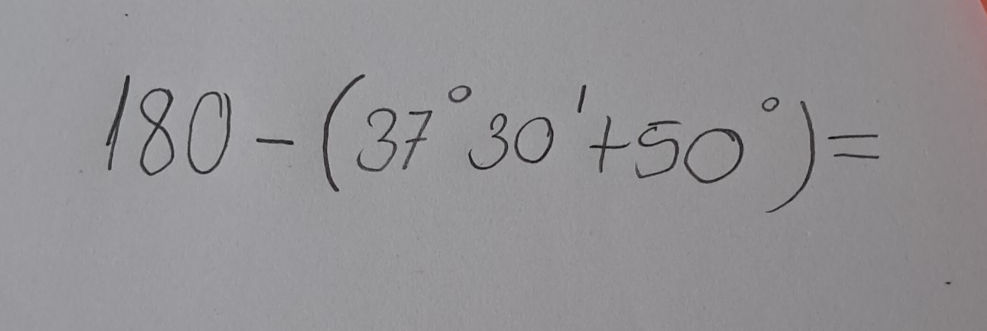 180-(37°30'+50°)=